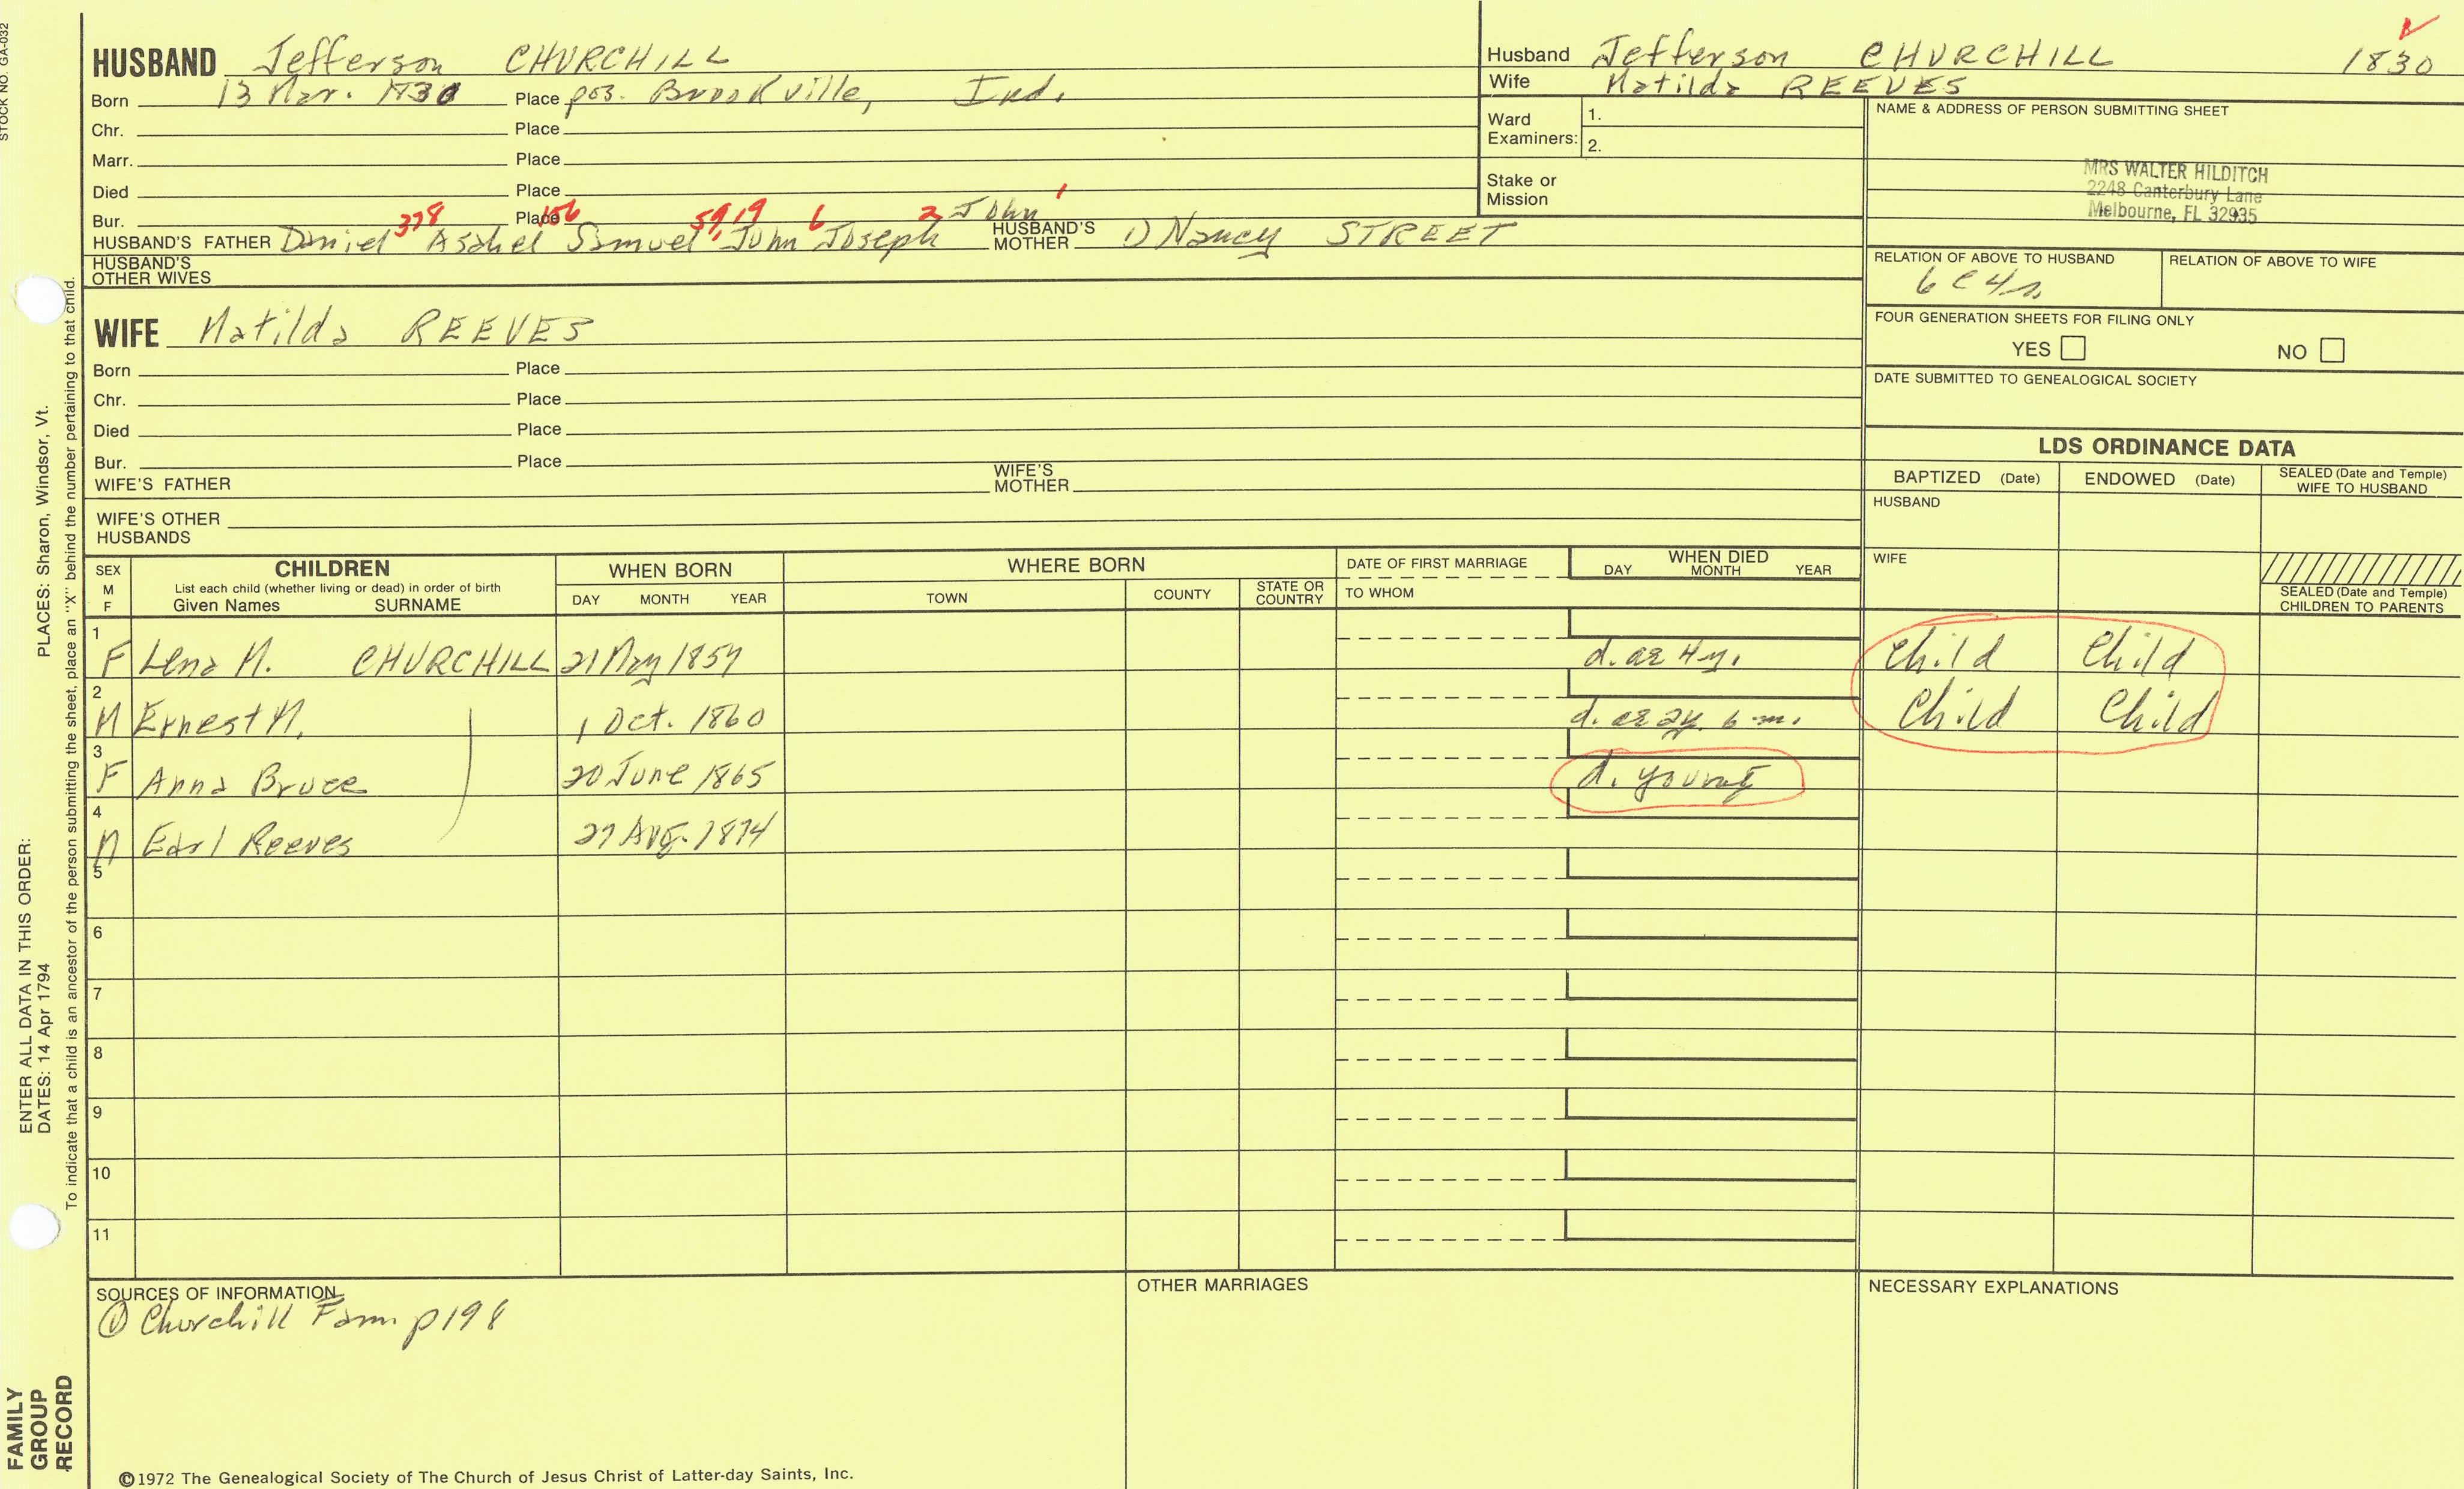 STOCK NO. GA-032
HUSBAND Jefferson CHURCHILL
Born 13 Mar. 1830 Place pos. Brookville, Ind.
Chr. Place
Marr. Place
Died Place
Bur. Place
378 156 59,19 6 2 John 1
HUSBAND'S FATHER Daniel Asahel Samuel, John Joseph HUSBAND'S MOTHER 1) Nancy STREET
HUSBAND'S OTHER WIVES
WIFE Matilda REEVES
Born Place
Chr. Place
Died Place
Bur. Place
WIFE'S FATHER WIFE'S MOTHER
WIFE'S OTHER HUSBANDS
Husband Jefferson CHURCHILL 1830
Wife Matilda REEVES
Ward Examiners: 1.
2.
Stake or Mission
NAME & ADDRESS OF PERSON SUBMITTING SHEET
MRS WALTER HILDITCH
2248 Canterbury Lane
Melbourne, FL 32935
RELATION OF ABOVE TO HUSBAND RELATION OF ABOVE TO WIFE
6C4r
FOUR GENERATION SHEETS FOR FILING ONLY
YES NO
DATE SUBMITTED TO GENEALOGICAL SOCIETY
LDS ORDINANCE DATA
BAPTIZED (Date) ENDOWED (Date) SEALED (Date and Temple) WIFE TO HUSBAND
HUSBAND
WIFE
SEALED (Date and Temple) CHILDREN TO PARENTS
SEX M F
CHILDREN
List each child (whether living or dead) in order of birth
Given Names SURNAME
WHEN BORN
DAY MONTH YEAR
WHERE BORN
TOWN COUNTY STATE OR COUNTRY
DATE OF FIRST MARRIAGE
TO WHOM
WHEN DIED
DAY MONTH YEAR
1 F Lena M. CHURCHILL 21 May 1857 d. ae 4 y. Child Child
2 M Ernest M. 1 Oct. 1860 d. ae 2y. 6 m. Child Child
3 F Anna Bruce 20 June 1865 d. young
4 M Earl Reeves 27 Aug. 1874
5
6
7
8
9
10
11
SOURCES OF INFORMATION
① Churchill Fam. p198
OTHER MARRIAGES
NECESSARY EXPLANATIONS
©1972 The Genealogical Society of The Church of Jesus Christ of Latter-day Saints, Inc.
ENTER ALL DATA IN THIS ORDER:
DATES: 14 Apr 1794 PLACES: Sharon, Windsor, Vt.
To indicate that a child is an ancestor of the person submitting the sheet, place an "X" behind the number pertaining to that child.
FAMILY
GROUP
RECORD